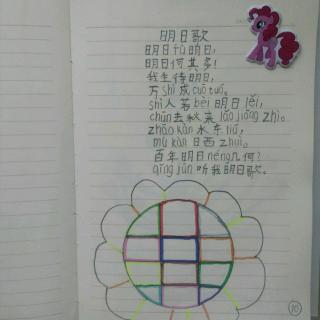 明日歌
明日fù明日，
明日何其多！
我生待明日，
万shì成cuō tuó。
shì人若bèi明日lěi，
chūn去秋来lǎo jiāng zhì。
zhāo kàn水东liú，
mù kàn日西zhuì。
百年明日néng几何？
qǐng jūn听我明日歌。
10